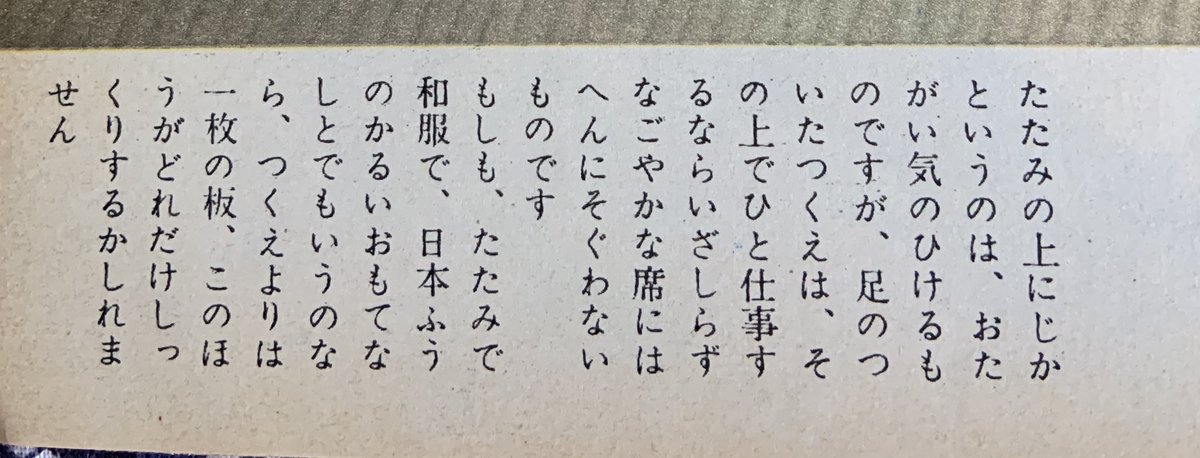 たたみの上にじか
というのは、おた
がい気のひけるも
のですが、足のつ
いたつくえは、そ
の上でひと仕事す
るならいざしらず
なごやかな席には
へんにそぐわない
ものです
もしも、たたみで
和服で、日本ふう
のかるいおもてな
しとでもいうのな
ら、つくえよりは
一枚の板、このほ
うがどれだけしっ
くりするかしれま
せん